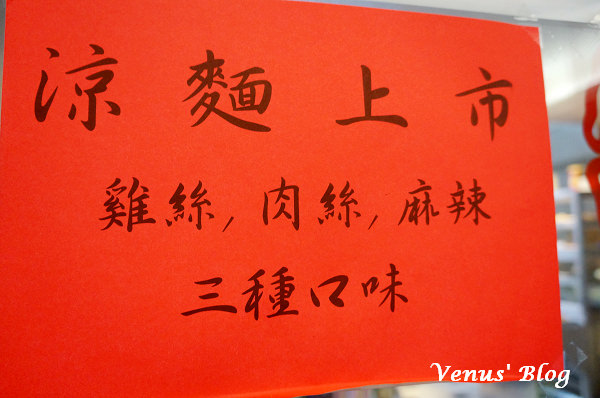 涼麵上市
雞絲,肉絲,麻辣
三種口味
Venus' Blog